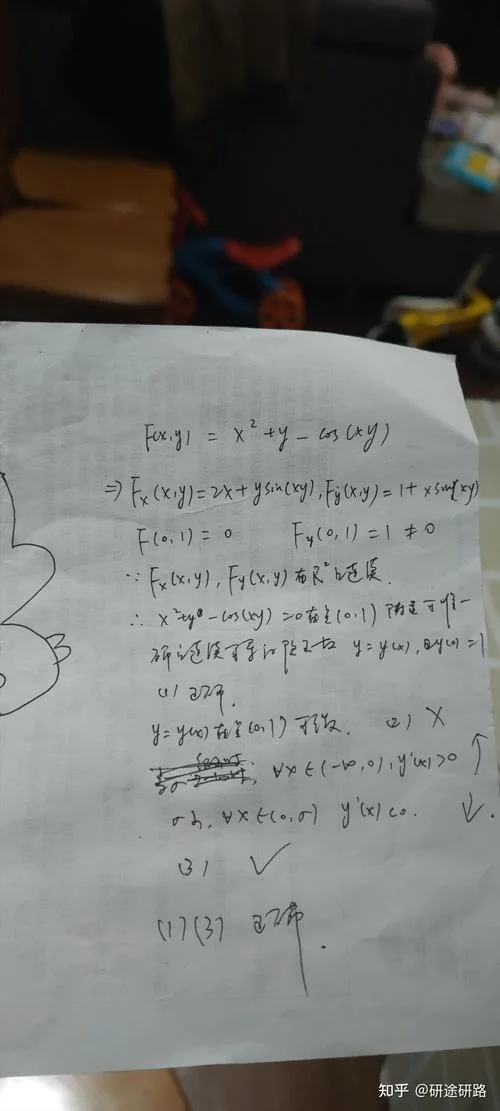 F(x,y) = x² + y - cos(xy)
⇒ Fx(x,y) = 2x + y sin(xy), Fy(x,y) = 1 + x sin(xy)
F(0,1) = 0 Fy(0,1) = 1 ≠ 0
∵ Fx(x,y), Fy(x,y) 在 R² 上连续.
∴ x² + y - cos(xy) = 0 在点(0,1) 附近可唯一
确定连续可导的隐函数 y = y(x), 且y(0) = 1
(1) 正确.
y = y(x) 在点(0,1) 可微. (2) ×
∀x ∈ (-σ, 0), y'(x) > 0 ↑
∀x ∈ (0, σ) y'(x) < 0. ↓.
(3) ✓
(1)(3) 正确.
知乎 @研途研路